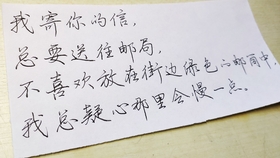 我寄你的信，
总要送往邮局，
不喜欢放在街边绿色的邮筒中，
我总疑心那里会慢一点。